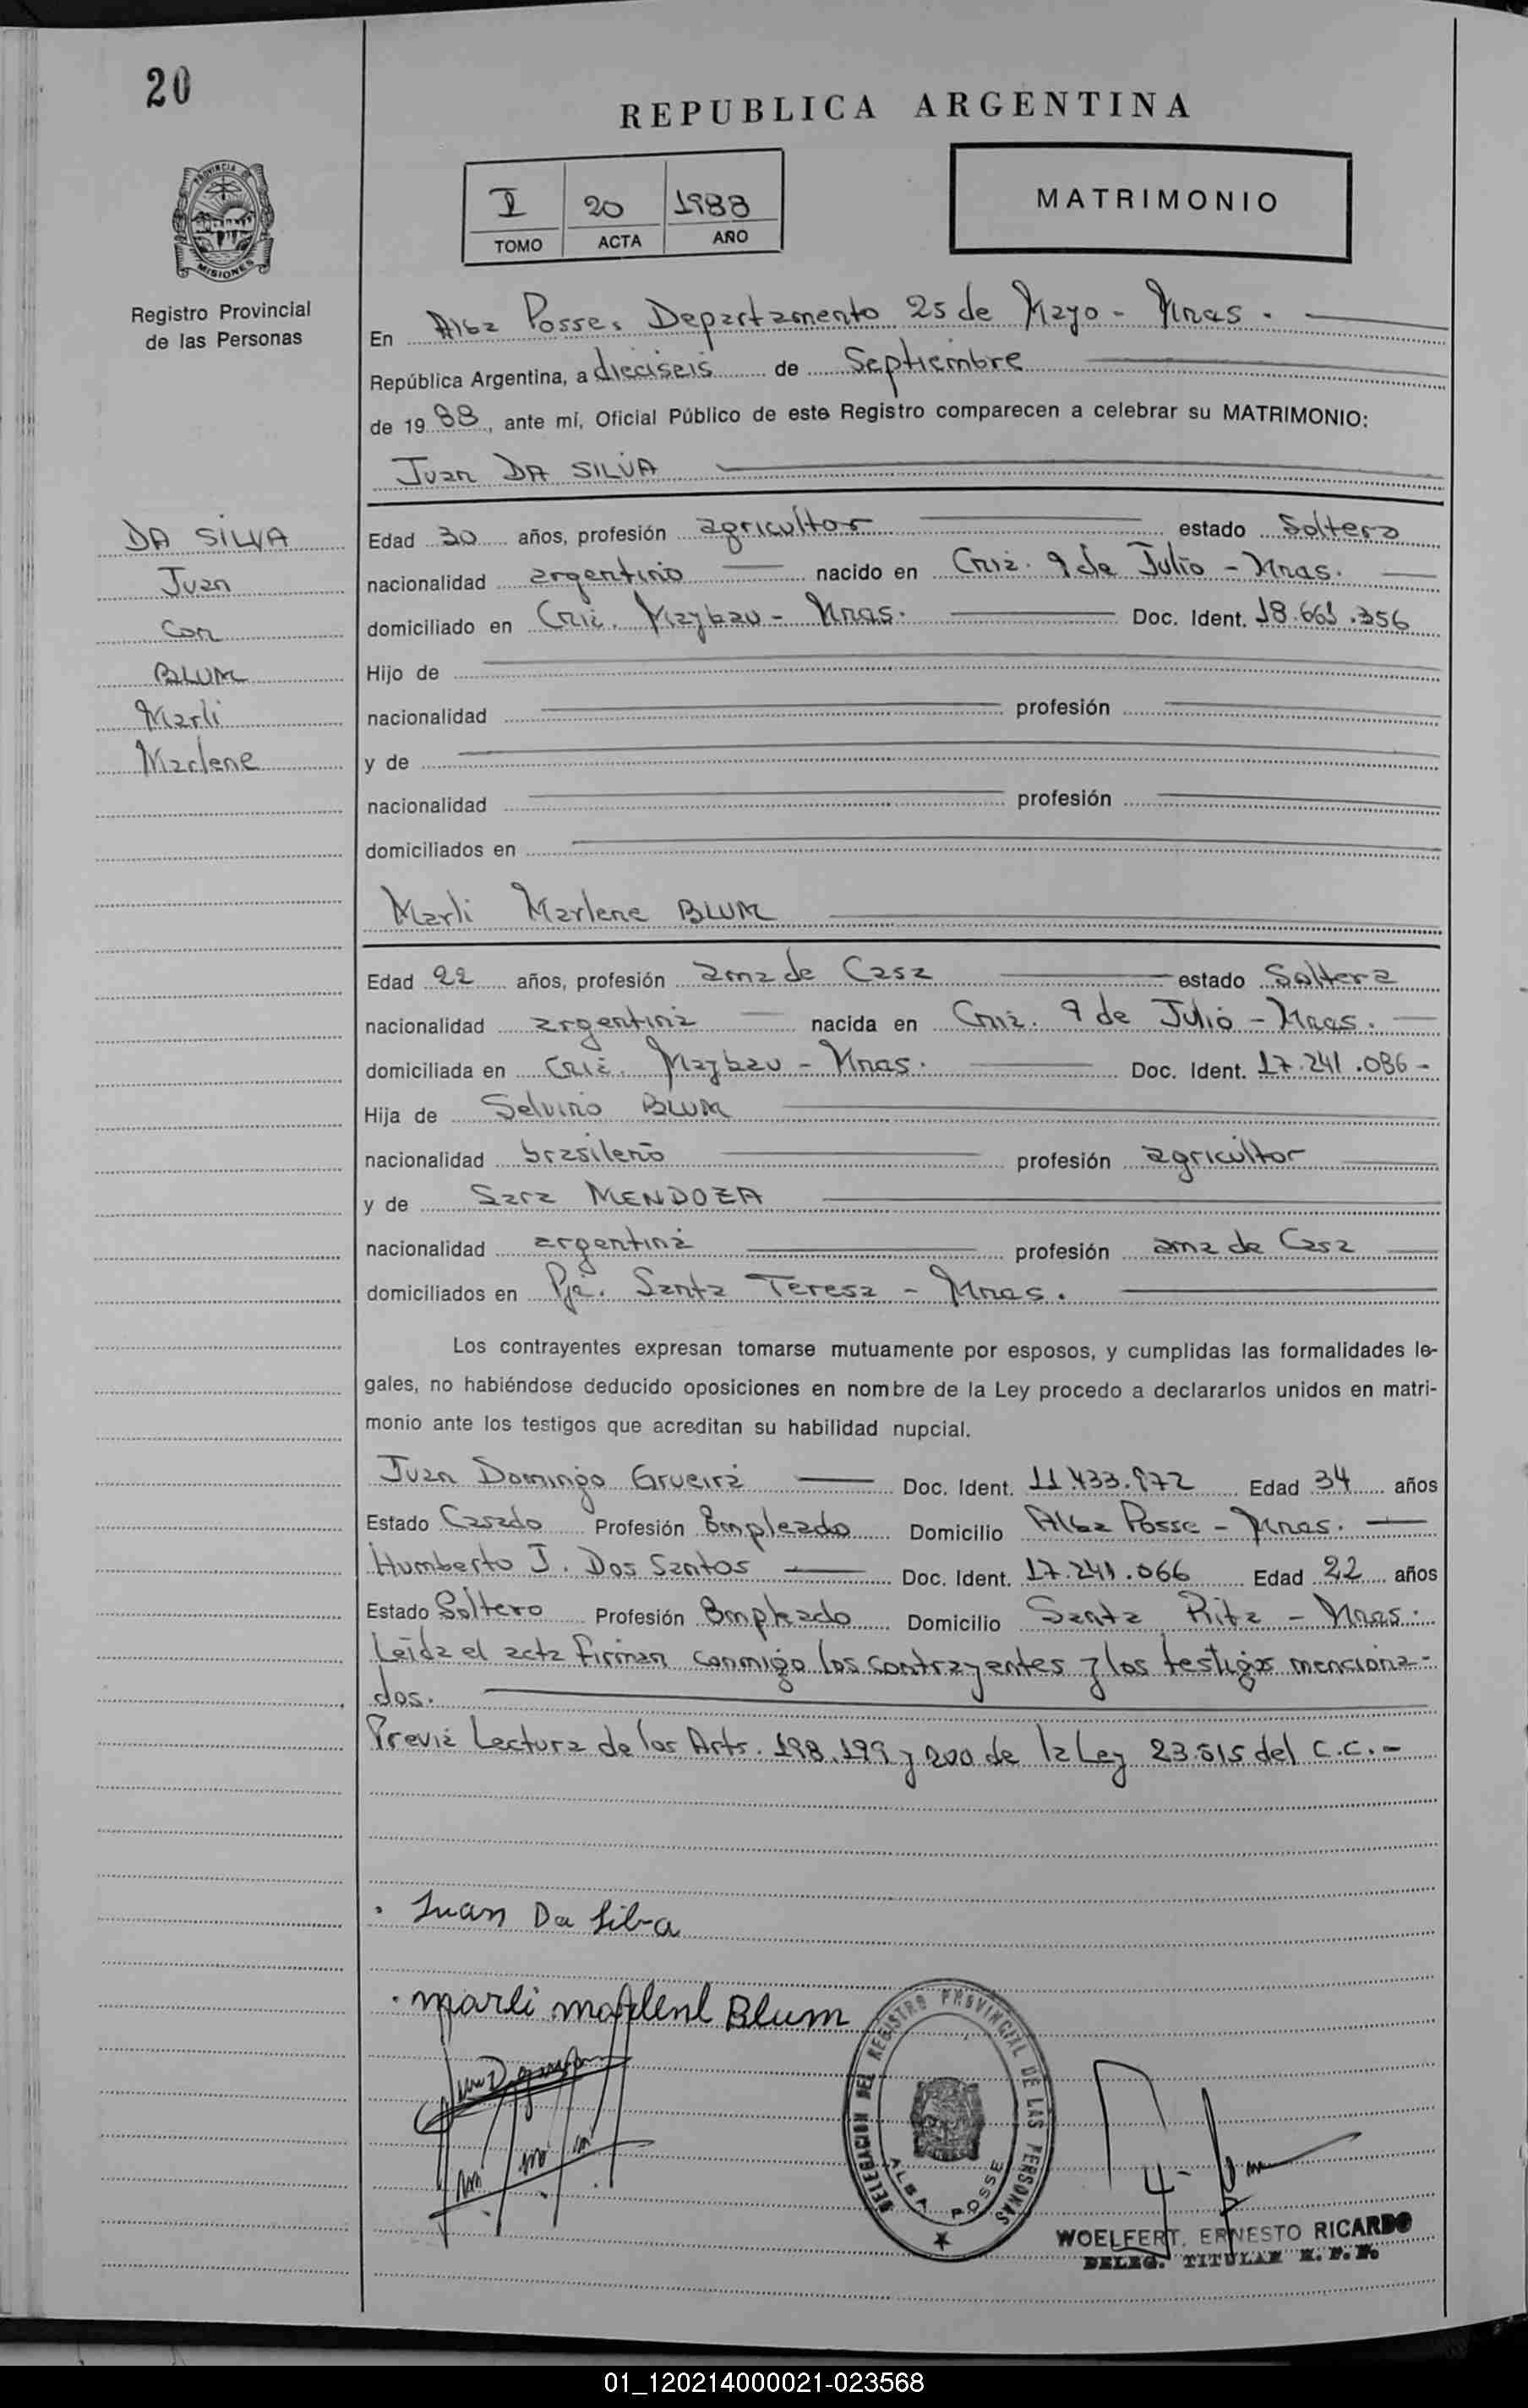 20
REPUBLICA ARGENTINA
PROVINCIA DE
MISIONES
I 20 1988
TOMO ACTA AÑO
MATRIMONIO
Registro Provincial
de las Personas
En Alba Posse, Departamento 25 de Mayo - Mnes.
República Argentina, a dieciseis de Septiembre
de 1988, ante mí, Oficial Público de este Registro comparecen a celebrar su MATRIMONIO:
Juan DA SILVA
DA SILVA
Juan
con
BLUM
Marli
Marlene
Edad 30 años, profesión agricultor estado Soltero
nacionalidad argentino nacido en Cnia. 9 de Julio - Mnes.
domiciliado en Cnia. Maybau - Mnes. Doc. Ident. 18.661.356
Hijo de
nacionalidad profesión
y de
nacionalidad profesión
domiciliados en
Marli Marlene BLUM
Edad 22 años, profesión ama de Casa estado Soltera
nacionalidad argentina nacida en Cnia. 9 de Julio - Mnes.
domiciliada en Cnia. Maybau - Mnes. Doc. Ident. 17.241.086 -
Hija de Selvino BLUM
nacionalidad brasileño profesión agricultor
y de Sara MENDOZA
nacionalidad argentina profesión ama de Casa
domiciliados en Pje. Santa Teresa - Mnes.
Los contrayentes expresan tomarse mutuamente por esposos, y cumplidas las formalidades le-
gales, no habiéndose deducido oposiciones en nombre de la Ley procedo a declararlos unidos en matri-
monio ante los testigos que acreditan su habilidad nupcial.
Juan Domingo Grueira Doc. Ident. 11.433.972 Edad 34 años
Estado Casado Profesión Empleado Domicilio Alba Posse - Mnes.
Humberto J. Dos Santos Doc. Ident. 17.241.066 Edad 22 años
Estado Soltero Profesión Empleado Domicilio Santa Rita - Mnes.
Leída el acta firman conmigo los contrayentes y los testigos menciona-
dos.
Previa Lectura de los Arts. 198, 199 y 200 de la Ley 23.515 del C.C. -
Juan Da Silva
marli marlene Blum
DELEGACION DEL REGISTRO PROVINCIAL DE LAS PERSONAS
ALBA POSSE
WOELFERT, ERNESTO RICARDO
DELEG. TITULAR R. P. P.
01_120214000021-023568